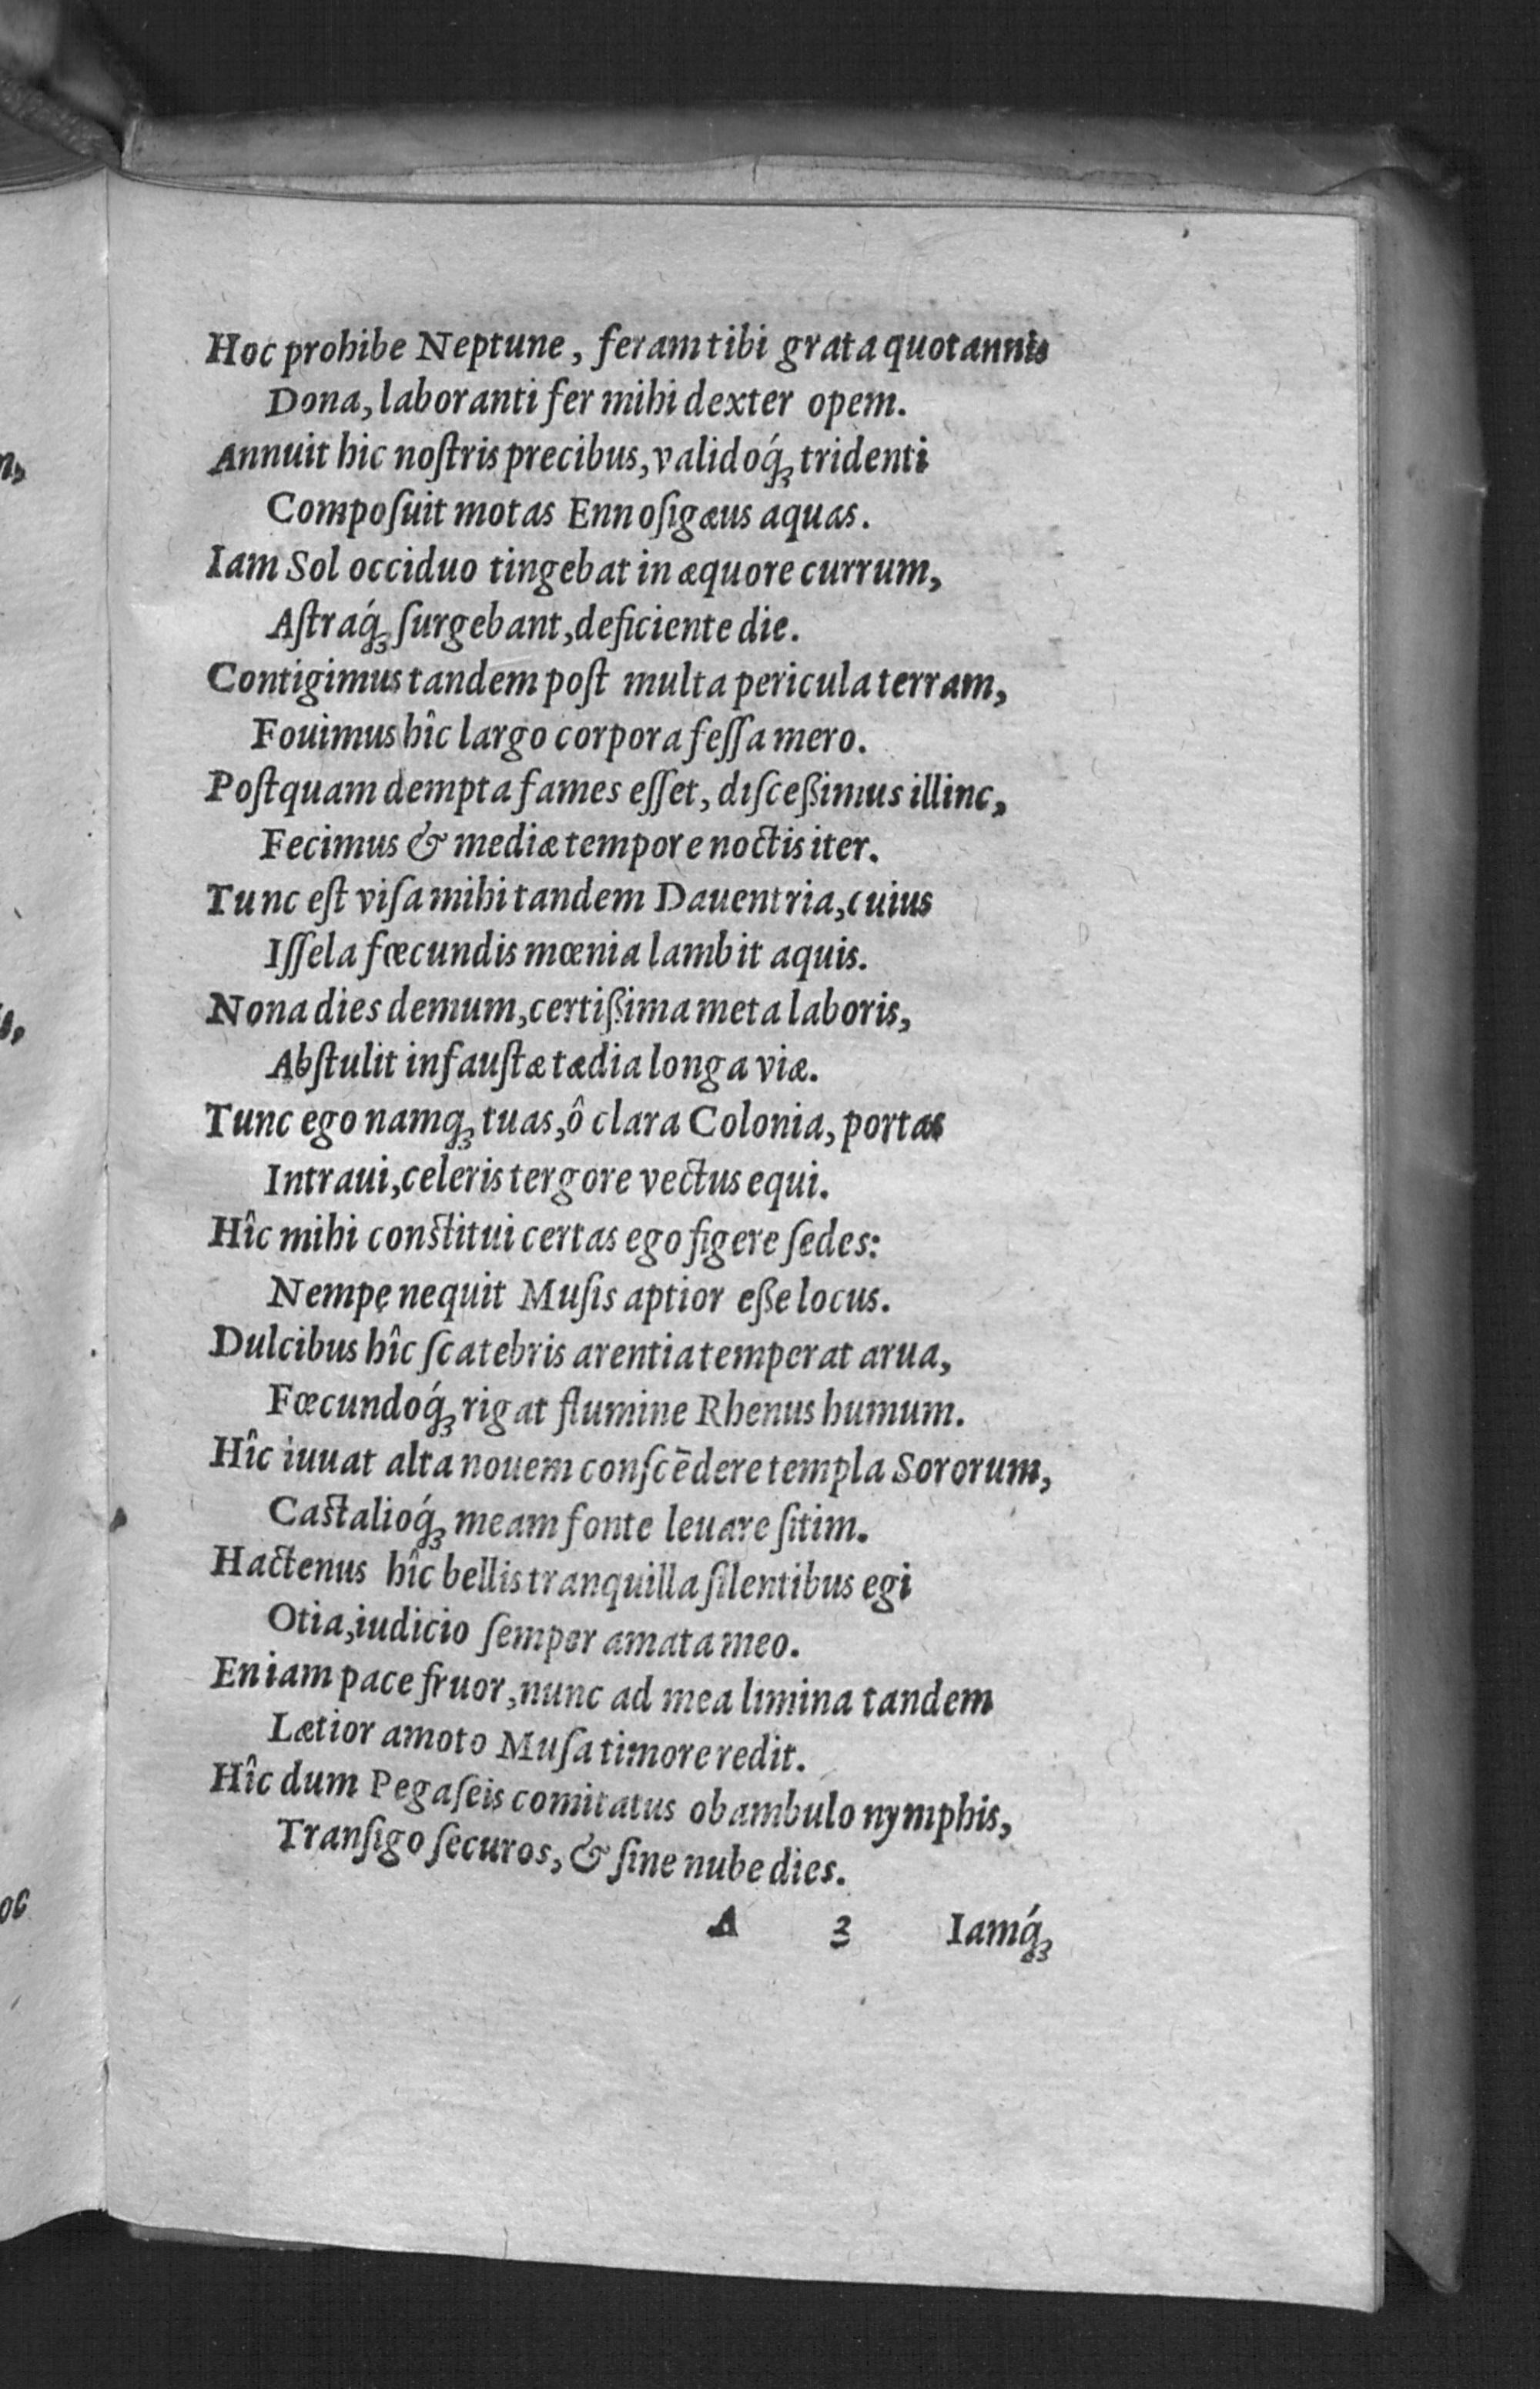 Hoc prohibe Neptune, feram tibi grata quotannis
Dona, laboranti fer mihi dexter opem.
Annuit hic noſtris precibus, validoq́ꝫ tridenti
Compoſuit motas Ennoſigæus aquas.
Iam Sol occiduo tingebat in æquore currum,
Aſtraq́ꝫ ſurgebant, deficiente die.
Contigimus tandem poſt multa pericula terram,
Fouimus hîc largo corpora feſſa mero.
Poſtquam dempta fames eſſet, diſceßimus illinc,
Fecimus & mediæ tempore noctis iter.
Tunc eſt viſa mihi tandem Dauentria, cuius
Iſſela fœcundis mœnia lambit aquis.
Nona dies demum, certißima meta laboris,
Abſtulit infauſtæ tædia longa viæ.
Tunc ego namqꝫ tuas, ô clara Colonia, portas
Intraui, celeris tergore vectus equi.
Hîc mihi conſtitui certas ego figere ſedes:
Nempę nequit Muſis aptior eße locus.
Dulcibus hîc ſcatebris arentia temperat arua,
Fœcundoq́ꝫ rigat flumine Rhenus humum.
Hîc iuuat alta nouem conſcēdere templa Sororum,
Caſtalioq́ꝫ meam fonte leuare ſitim.
Hactenus hîc bellis tranquilla ſilentibus egi
Otia, iudicio ſemper amata meo.
En iam pace fruor, nunc ad mea limina tandem
Lætior amoto Muſa timore redit.
Hîc dum Pegaſeis comitatus obambulo nymphis,
Tranſigo ſecuros, & ſine nube dies.
A 3 Iamq́ꝫ